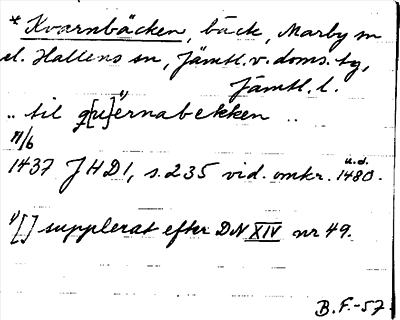 * Kvarnbäcken, bäck, Marby sn
el. Hallens sn, Jämtl. v. doms. tg,
Jämtl. l.
.. til q[u]¹⁾ernabekken ..
11/6
1437 JHD1, s. 235 vid. omkr. u.d. 1480.
¹⁾ [] supplerat efter DN XIV nr 49.
B. F. -57.